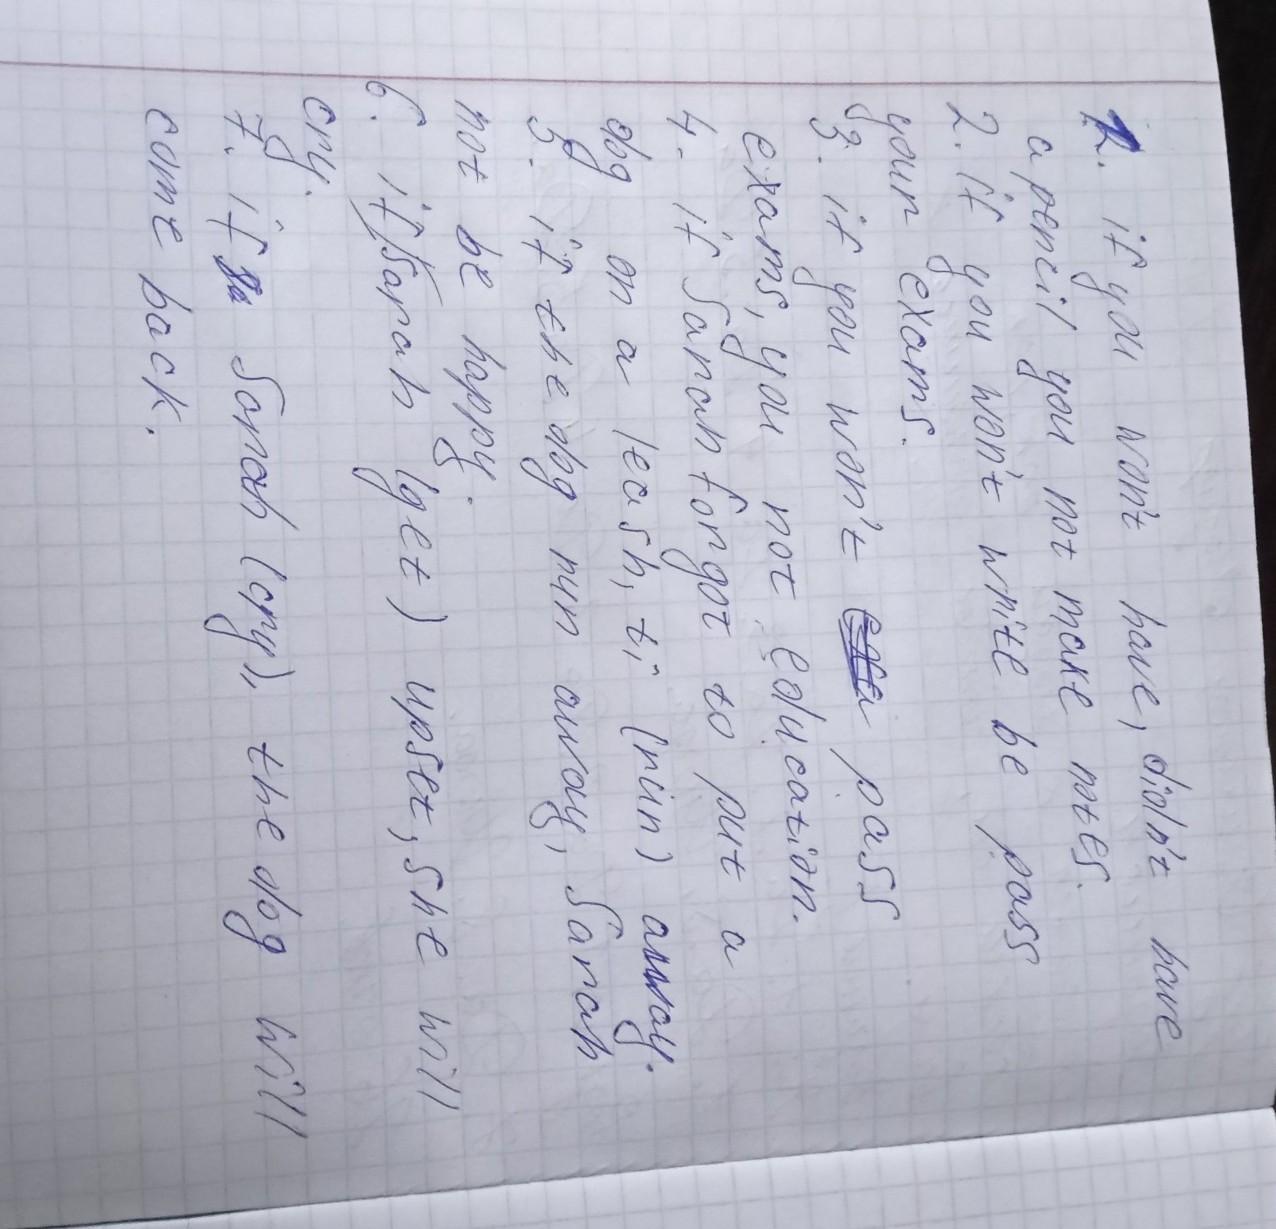 1. if you won't have, didn't have
a pencil you not make notes.
2. if you won't write be pass
your exams.
3. if you won't pass
exams, you not education.
4. if Sarah forgot to put a
dog on a leash, ti (run) away.
5. if the dog run away, Sarah
not be happy.
6. if Sarah (get) upset, she will
cry.
7. if Sarah (cry), the dog will
came back.